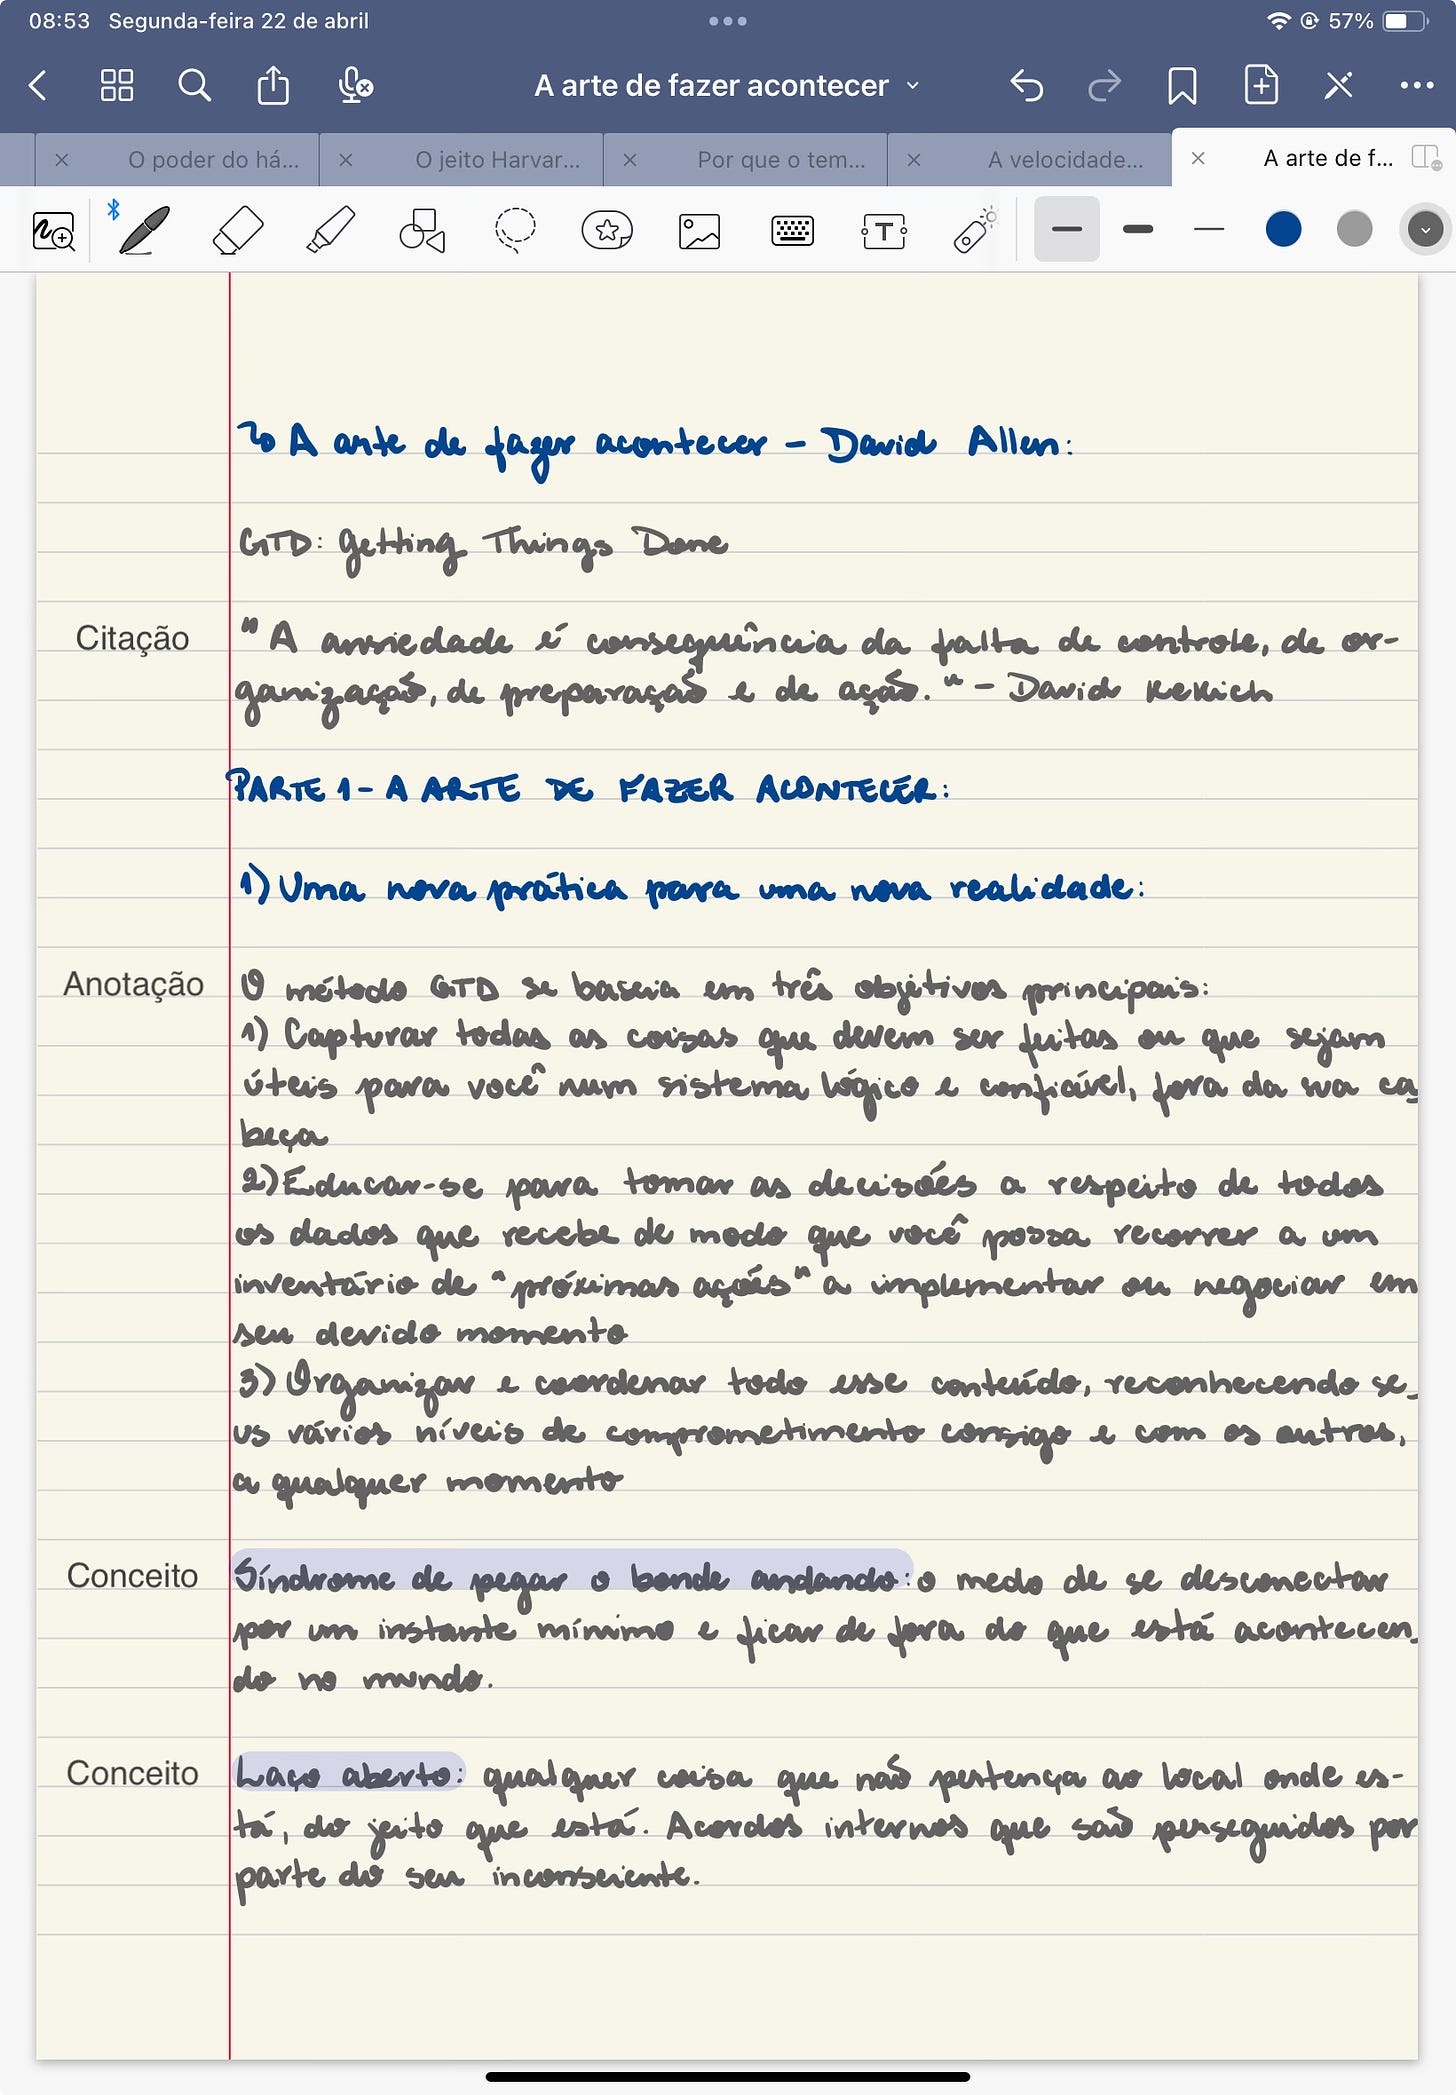 08:53 Segunda-feira 22 de abril 57%
A arte de fazer acontecer
O poder do há... O jeito Harvar... Por que o tem... A velocidade... A arte de f...
A arte de fazer acontecer - David Allen:
GTD: Getting Things Done
Citação "A ansiedade é consequência da falta de controle, de or-
ganização, de preparação e de ação." - David Kekich
PARTE 1 - A ARTE DE FAZER ACONTECER:
1) Uma nova prática para uma nova realidade:
Anotação O método GTD se baseia em três objetivos principais:
1) Capturar todas as coisas que devem ser feitas ou que sejam
úteis para você num sistema lógico e confiável, fora da sua ca
beça
2) Educar-se para tomar as decisões a respeito de todos
os dados que recebe de modo que você possa recorrer a um
inventário de "próximas ações" a implementar ou negociar em
seu devido momento
3) Organizar e coordenar todo esse conteúdo, reconhecendo se_
us vários níveis de comprometimento consigo e com os outros,
a qualquer momento
Conceito Síndrome de pegar o bonde andando: o medo de se desconectar
por um instante mínimo e ficar de fora do que está acontecen_
do no mundo.
Conceito Laço aberto: qualquer coisa que não pertença ao local onde es-
tá, do jeito que está. Acordos internos que são perseguidos por
parte do seu inconsciente.